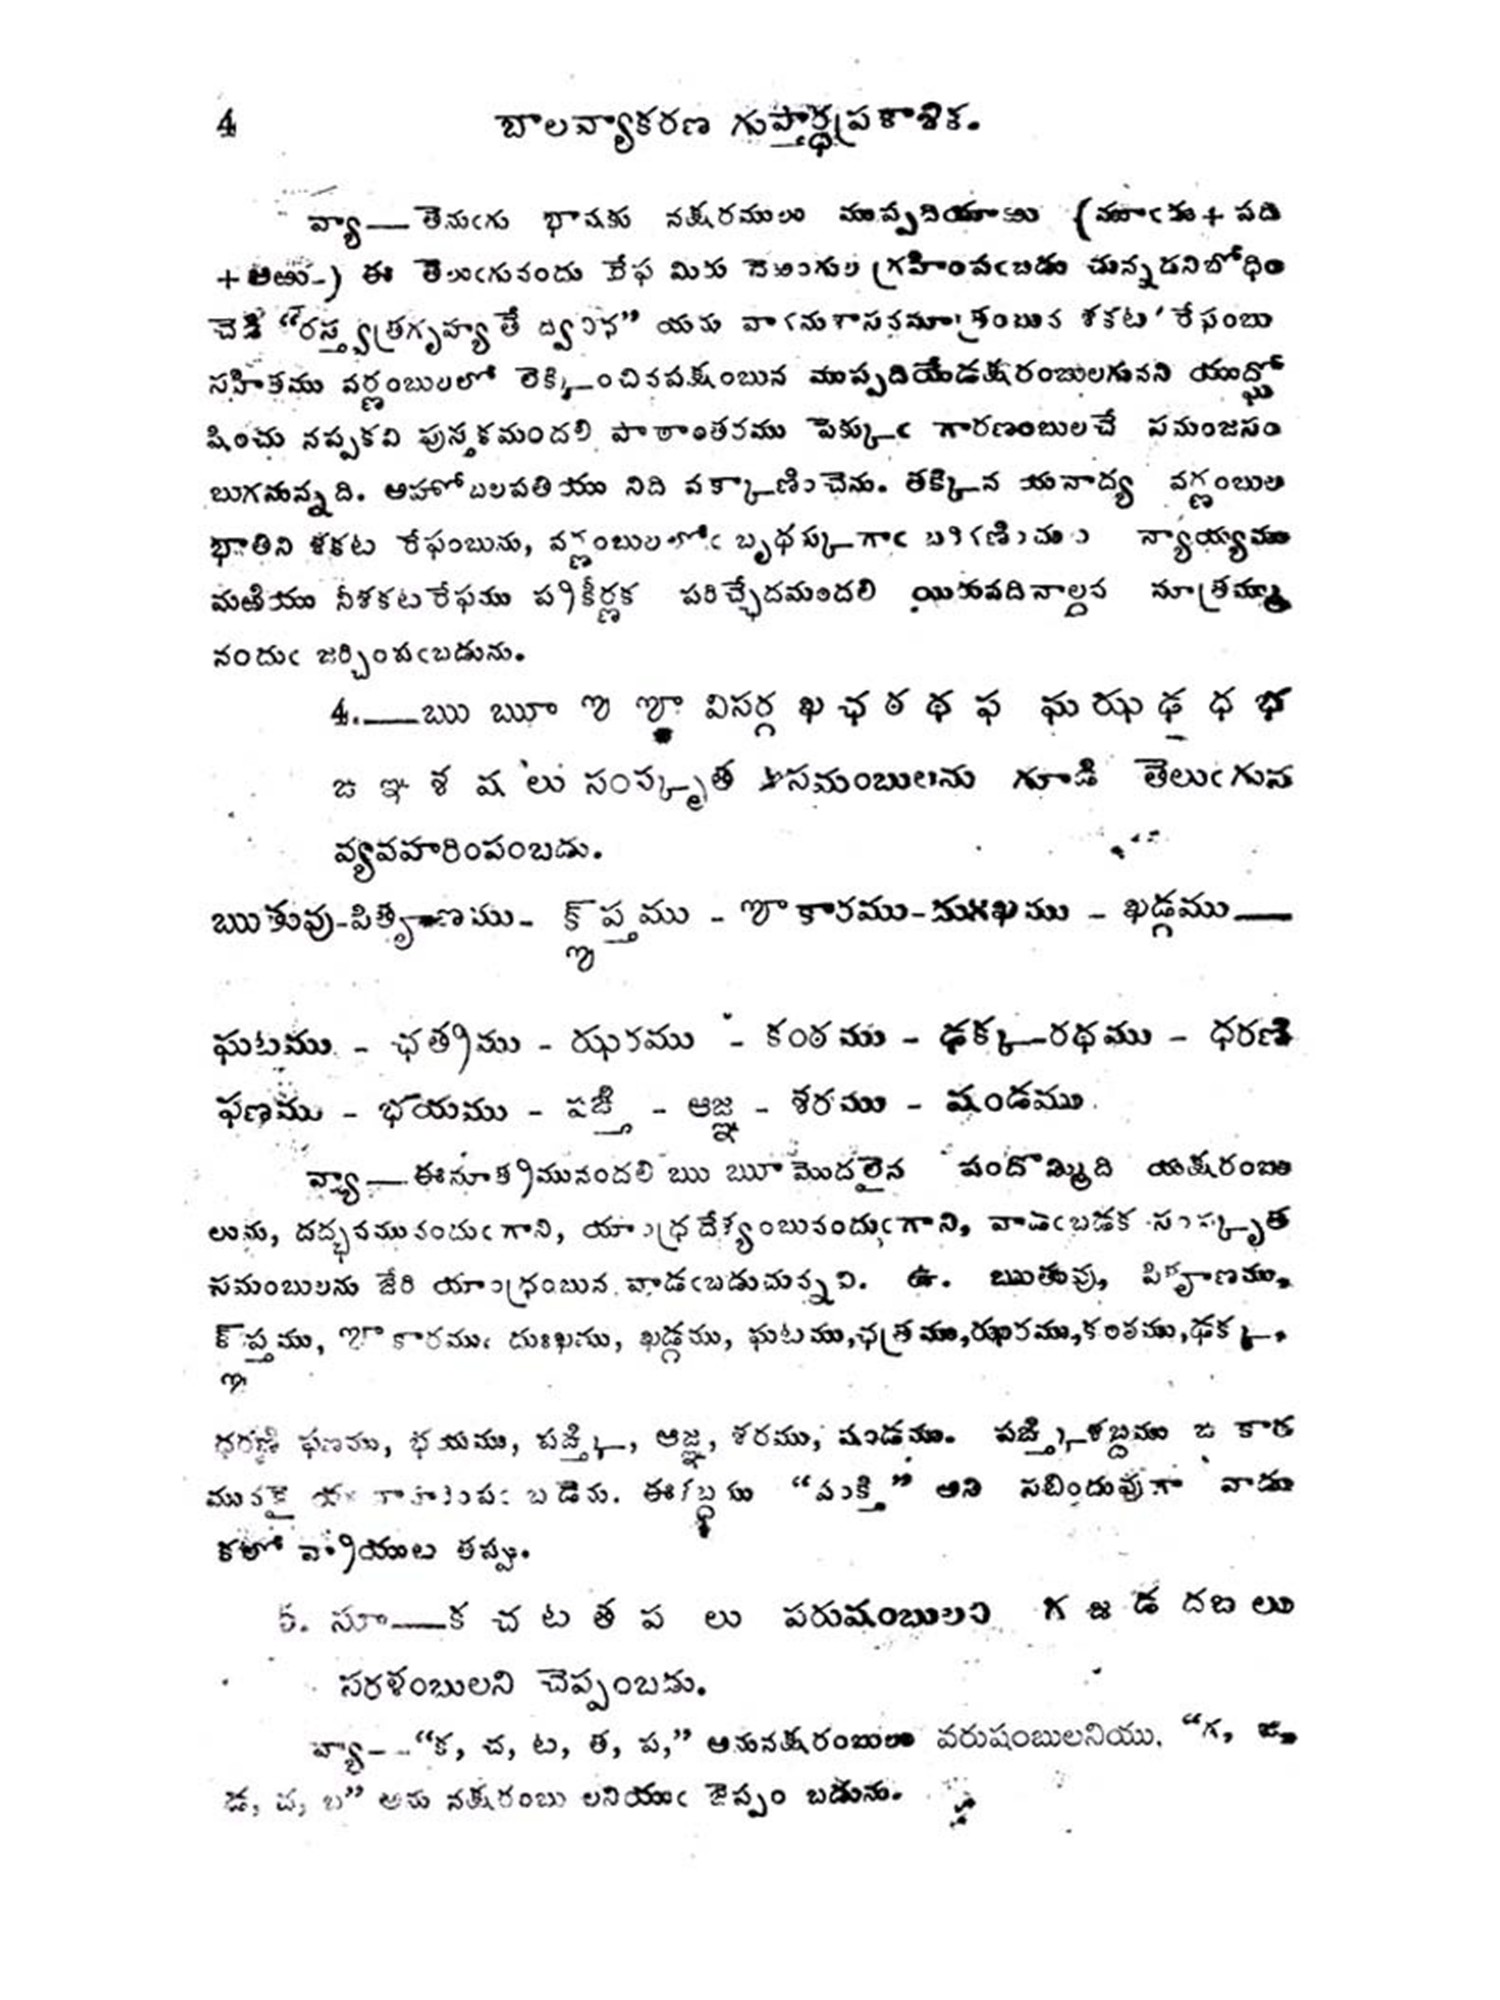 4 బాలవ్యాకరణ గుప్తార్థప్రకాశిక.
వ్యా—తెనుఁగు భాషకు నక్షరములు ముప్పదియాఱు (మూఁడు+పది
+ఆఱు-) ఈ తెలుఁగునందు రేఫ గ్రహింపఁబడు చున్నదనిబోధిం
చెడి “రస్త్వత్రగృహ్యతే యను శకట రేఫంబు
సహితము వర్ణంబులలో లెక్కించినపక్షంబున ముప్పదియేడక్షరంబులగునని యుద్ఘో
షించు నప్పకవి పుస్తకమందలి పాఠాంతరము పెక్కుఁ గారణంబులచే సమంజసం
బుగనున్నది. అహోబలపతియు నిది వక్కాణించెను. తక్కిన యనాద్య వర్ణంబుల
భాతిని శకట రేఫంబును, వర్ణంబులలోఁ బృథక్కుగాఁ బరిగణించుట న్యాయ్యము
మఱియు నీశకటరేఫము ప్రకీర్ణక పరిచ్ఛేదమందలి యిరువదినాల్గవ సూత్రమ్ము
నందుఁ జర్చింపఁబడును.
4.—ఋ ౠ ఌ ౡ విసర్గ ఖ ఛ ఠ థ ఫ ఘ ఝ ఢ ధ భ
ఙ ఞ శ ష లు సంస్కృత సమంబులను గూడి తెలుఁగున
వ్యవహరింపంబడు.
ఋతువు-పితౄణము- క్ఌప్తము - ౡకారము-దుఃఖము - ఖడ్గము—
ఘటము - ఛత్రము - ఝరము - కంఠము - ఢక్క-రథము - ధరణి
ఫణము - భయము - పఙ్క్తి - ఆజ్ఞ - శరము - షండము.
వ్యా—ఈసూత్రమునందలి ఋ ౠ మొదలైన పందొమ్మిది యక్షరంబు
లును, దద్భవమునందుఁగాని, యాంధ్రదేశ్యంబునందుఁగాని, వాడఁబడక సంస్కృత
సమంబులను జేరి యాంధ్రంబున వాడఁబడుచున్నవి. ఉ. ఋతువు, పితౄణము,
క్ఌప్తము, ౡకారముఁ దుఃఖము, ఖడ్గము, ఘటము,ఛత్రము,ఝరము,కంఠము,ఢక్క,
ధరణి ఫణము, భయము, పఙ్క్తి, ఆజ్ఞ, శరము, షండము. పఙ్క్తిశబ్దము ఙ కార
మునకై బడెను. ఈశబ్దము “పంక్తి” అని సబిందువుగా వాడు
కలో వ్రాయుట తప్పు.
5. సూ—క చ ట త ప లు పరుషంబులని గ జ డ దబ లు
సరళంబులని చెప్పంబడు.
వ్యా—“క, చ, ట, త, ప,” అనునక్షరంబులు పరుషంబులనియు, “గ, జ,
డ, ద, బ” అను నక్షరంబు లనియుఁ జెప్పం బడును.